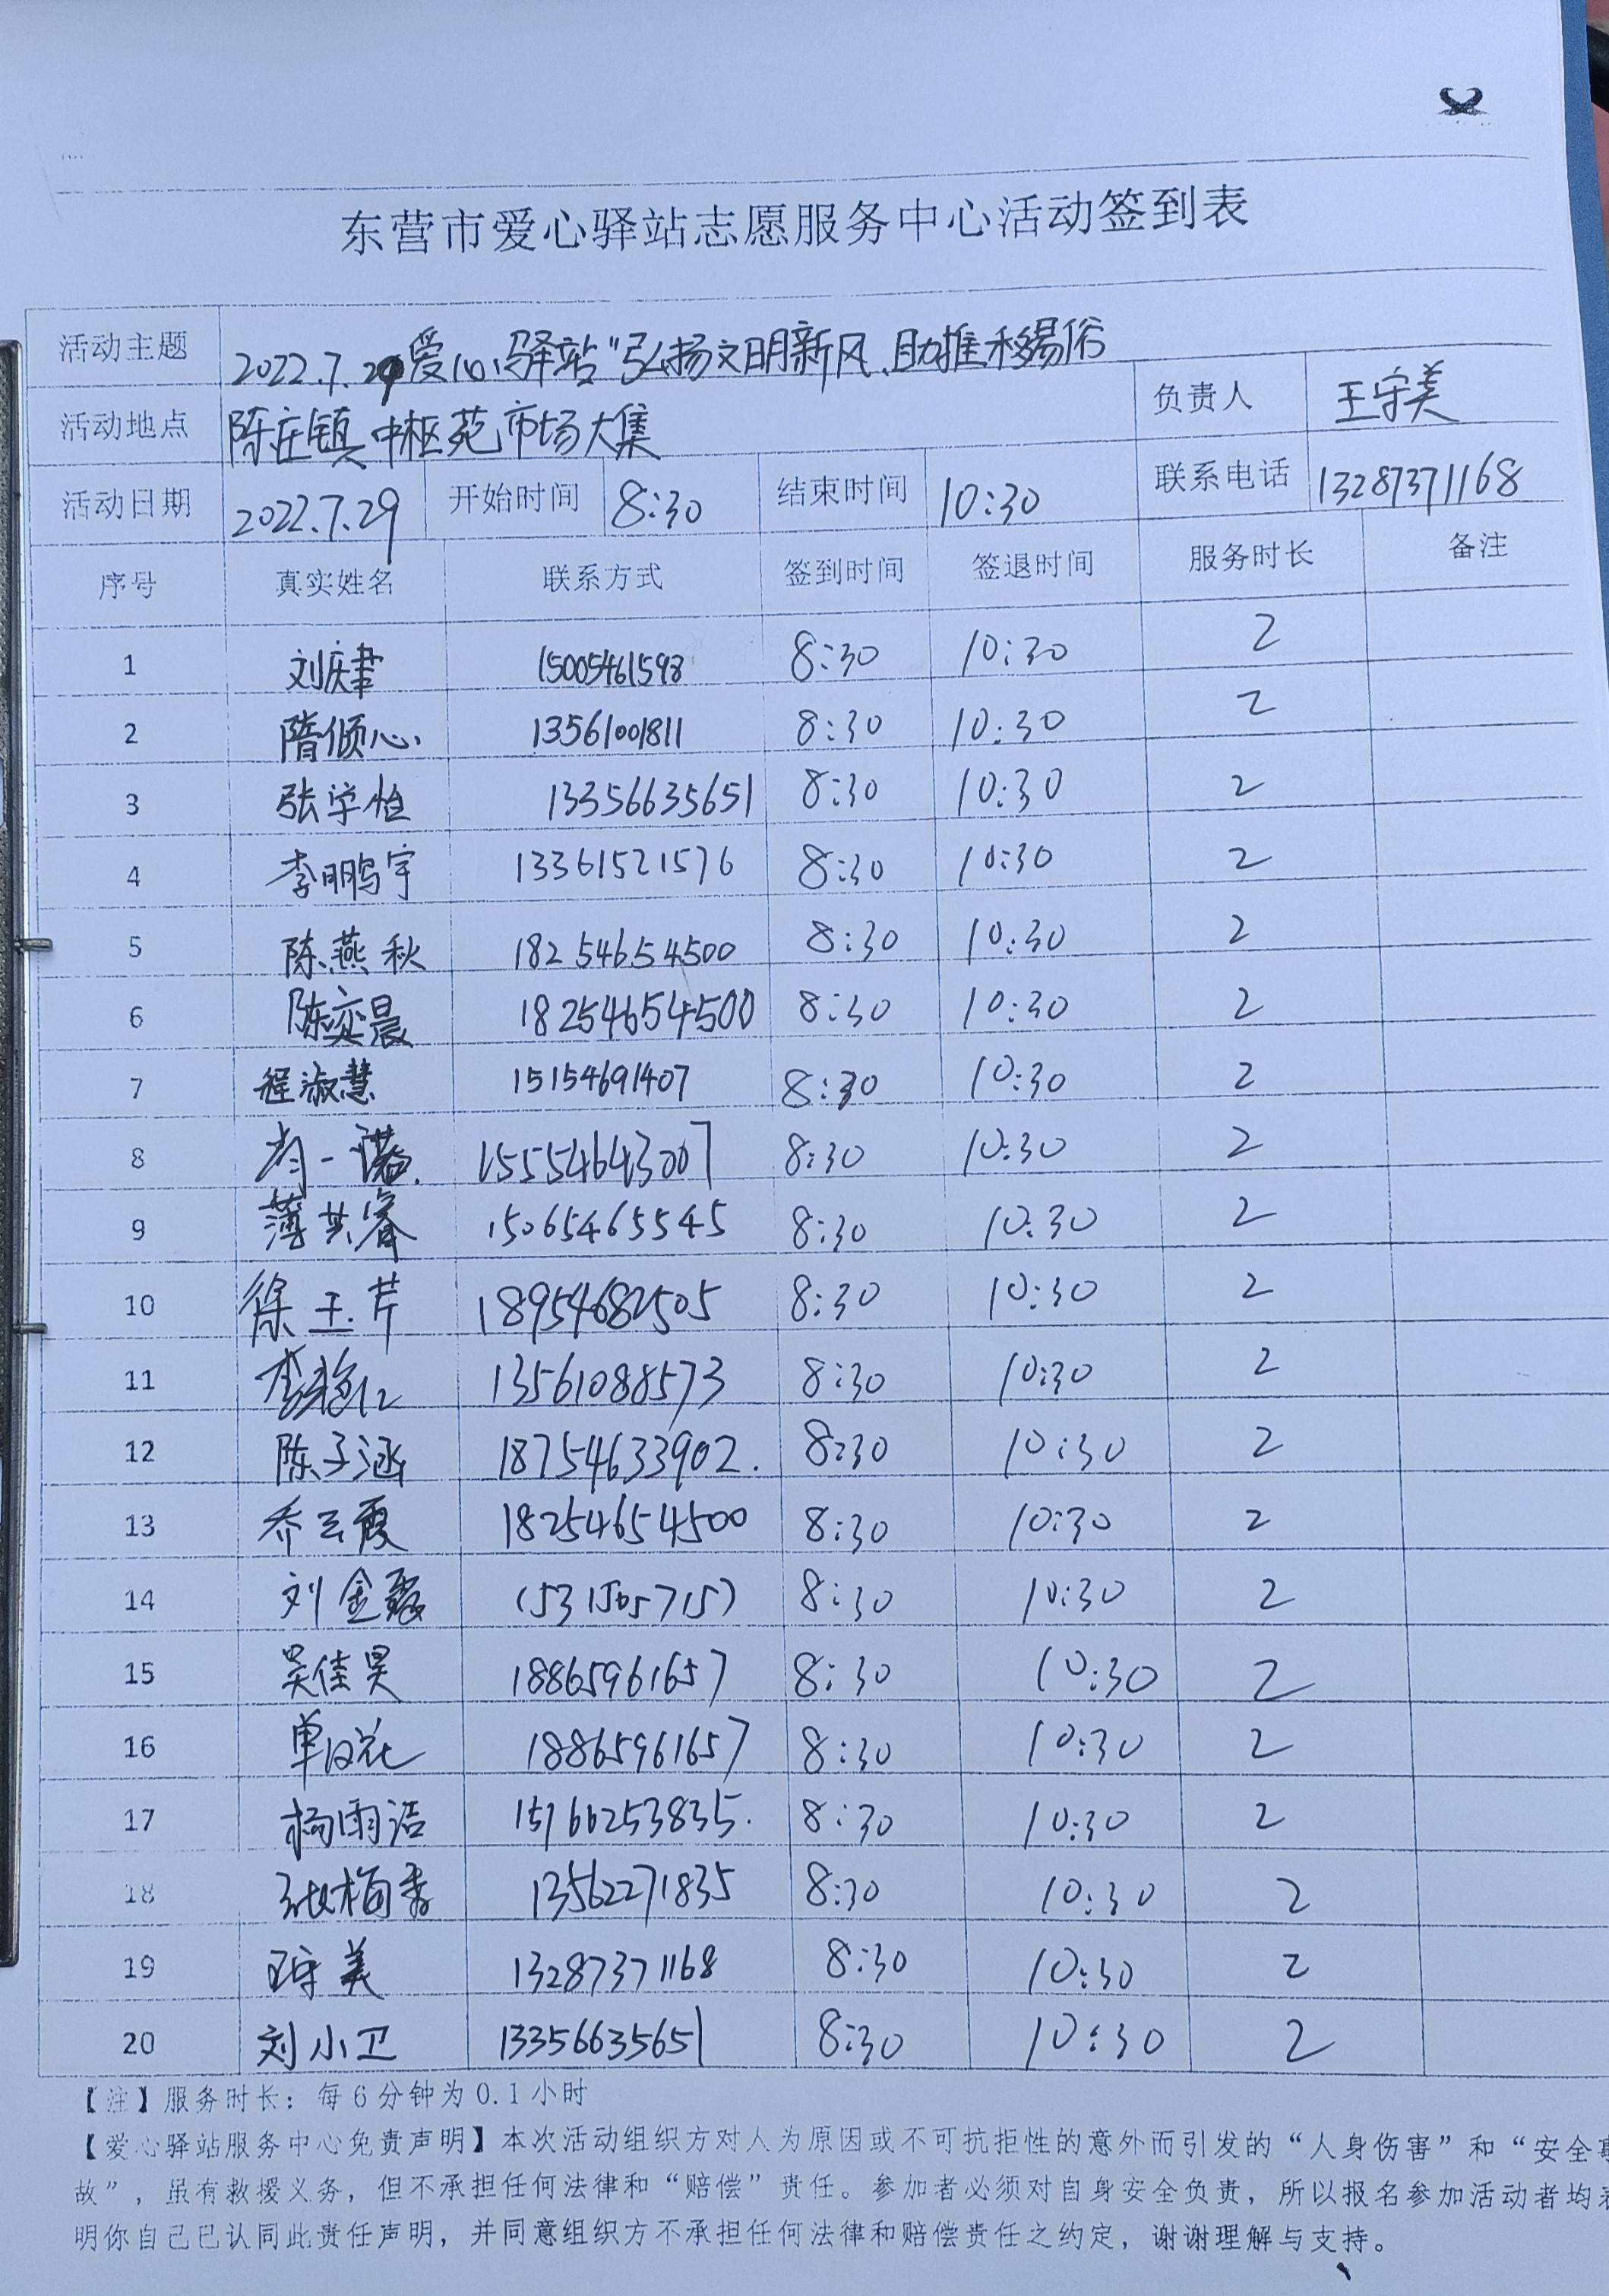 东营市爱心驿站志愿服务中心活动签到表
活动主题 2022.7.29爱心驿站"弘扬文明新风、助推移易俗
活动地点 陈庄镇中枢苑市场大集 负责人 王守美
活动日期 2022.7.29 开始时间 8:30 结束时间 10:30 联系电话 13287371168
序号 真实姓名 联系方式 签到时间 签退时间 服务时长 备注
1 刘庆聿 15005461598 8:30 10:30 2
2 隋倾心 13561001811 8:30 10:30 2
3 张学怡 13356635651 8:30 10:30 2
4 李鹏宇 13361521576 8:30 10:30 2
5 陈燕秋 18254654500 8:30 10:30 2
6 陈奕晨 18254654500 8:30 10:30 2
7 程淑慧 15154691407 8:30 10:30 2
8 肖一诺 15554643007 8:30 10:30 2
9 薄其睿 15065465545 8:30 10:30 2
10 徐玉芹 18954682505 8:30 10:30 2
11 13561088573 8:30 10:30 2
12 陈子涵 18754633902. 8:30 10:30 2
13 乔云霞 18254654500 8:30 10:30 2
14 刘金霞 8:30 10:30 2
15 吴佳昊 18865961657 8:30 10:30 2
16 18865961657 8:30 10:30 2
17 杨雨洁 15166253835. 8:30 10:30 2
18 张梅香 13562271835 8:30 10:30 2
19 王守美 13287371168 8:30 10:30 2
20 刘小卫 13356635651 8:30 10:30 2
【注】服务时长：每6分钟为0.1小时
【爱心驿站服务中心免责声明】本次活动组织方对人为原因或不可抗拒性的意外而引发的“人身伤害”和“安全事
故”，虽有救援义务，但不承担任何法律和“赔偿”责任。参加者必须对自身安全负责，所以报名参加活动者均表
明你自己已认同此责任声明，并同意组织方不承担任何法律和赔偿责任之约定，谢谢理解与支持。